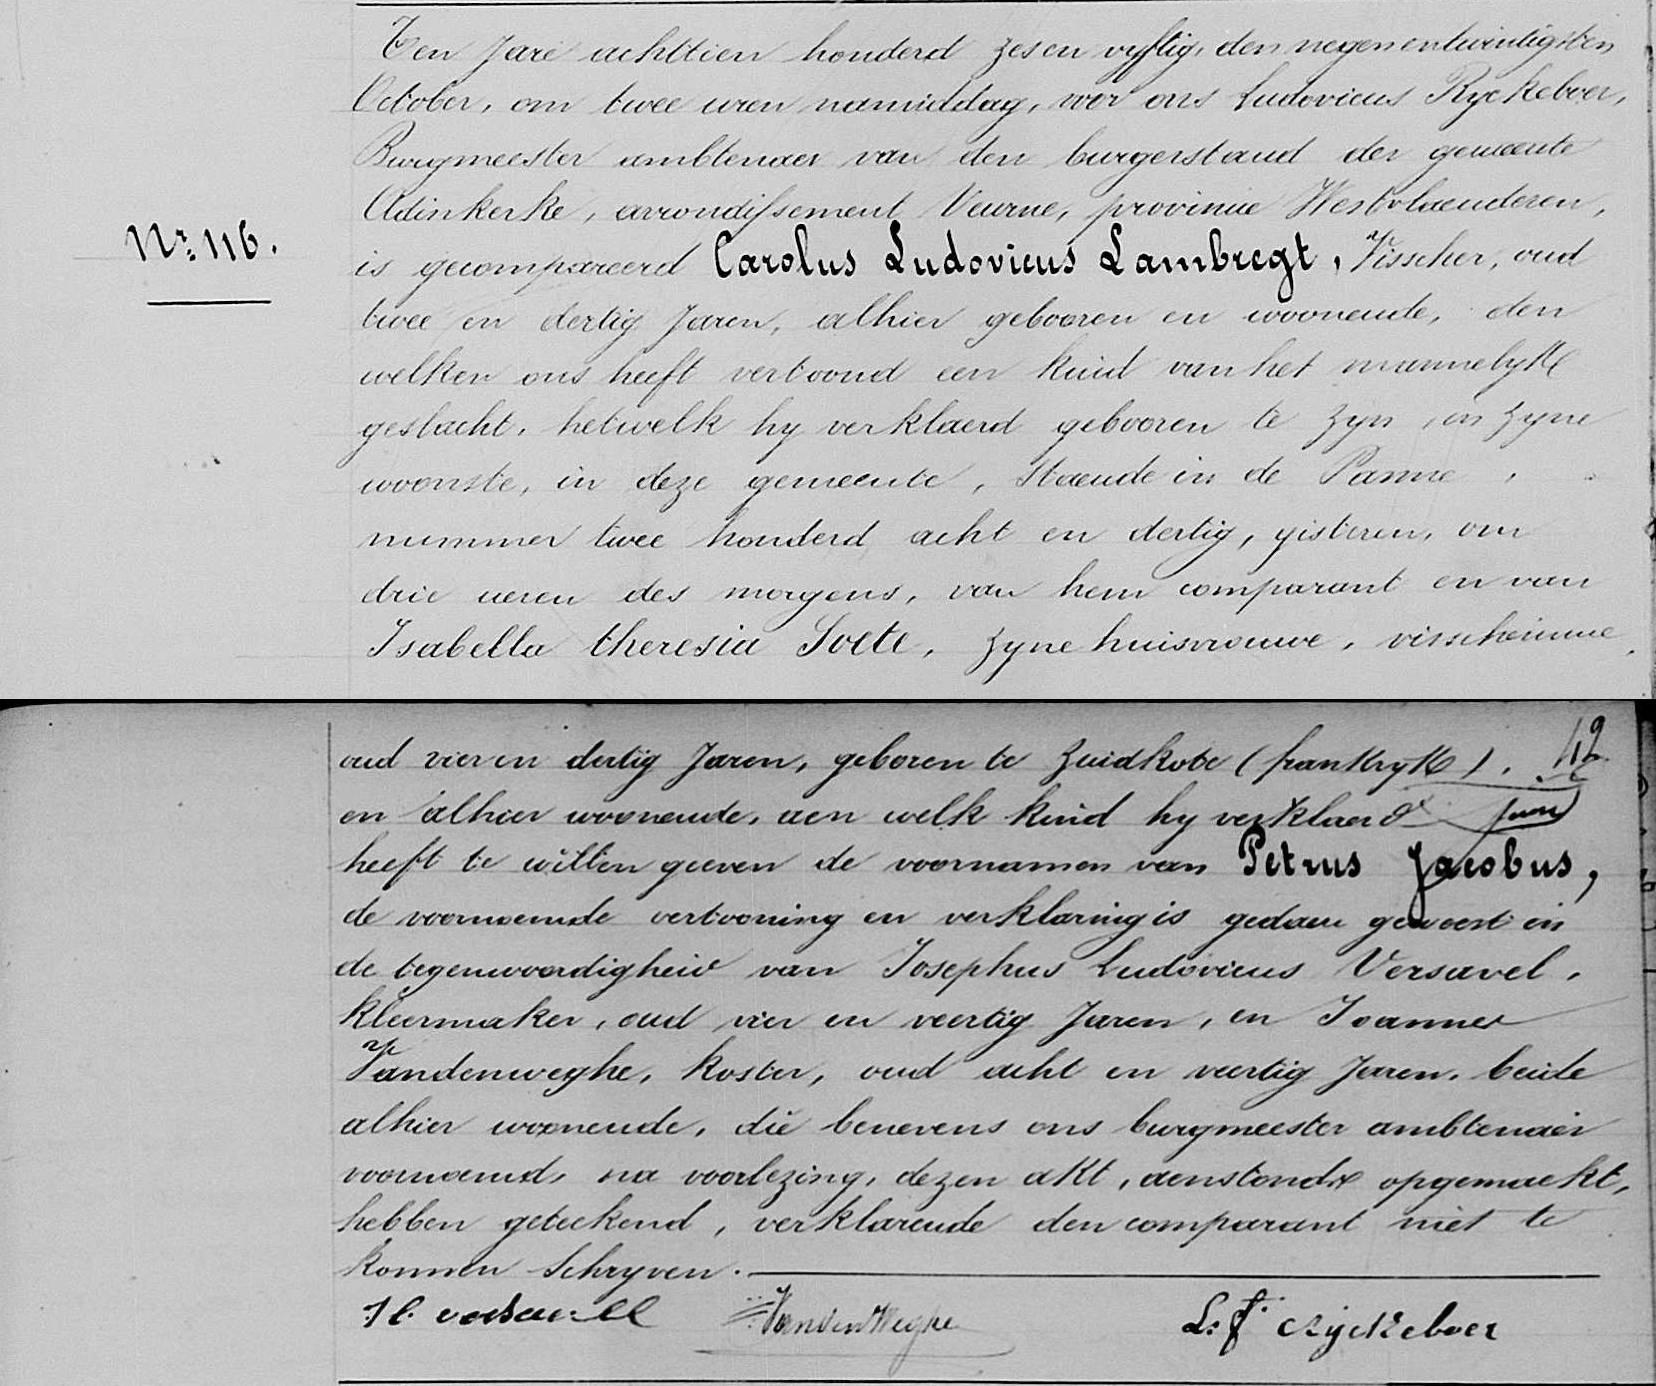 Ten Jare achttien honderd zes en vyftig, den negenentwintigsten
October, om twee uren namiddag, voor ons Ludovicus Ryckeboer,
Burgmeester ambtenaer van den burgerstand der gemeente
Adinkerke, arrondissement Veurne, provincie Westvlaenderen,
Nr. 116.
is gecompareerd Carolus Ludovicus Lambregt, Visscher, oud
twee en dertig Jaren, alhier gebooren en woonende, den
welken ons heeft vertoond een kind van het mannelyk
geslacht, hetwelk hy verklaerd gebooren te zyn, in zyne
woonste, in deze gemeente, staende in de Panne,
nummer twee honderd acht en dertig, gisteren, om
drie ueren des morgens, van hem comparant en van
Isabella theresia Soete, zyne huisvrouwe, visscherinne,
oud vier en dertig Jaren, geboren te Zuidkote (frankryk),
42
en alhier woonende, aen welk kind hy verklaerd
heeft te willen geeven de voornamen van Petrus Jacobus,
de voornoemde vertooning en verklaring is gedaen geweest in
de tegenwoordigheid van Josephus Ludovicus Versavel,
kleermaker, oud vier en veertig Jaren, en Joannes
Vandenweghe, koster, oud acht en veertig Jaren, beide
alhier woonende, die benevens ons burgmeester ambtenaer
voornoemd, na voorlezing, dezen akt, aenstonds opgemaekt,
hebben geteekend, verklarende den comparant niet te
konnen Schryven.
J L versavell VandenWeghe L. f. Ryckeboer